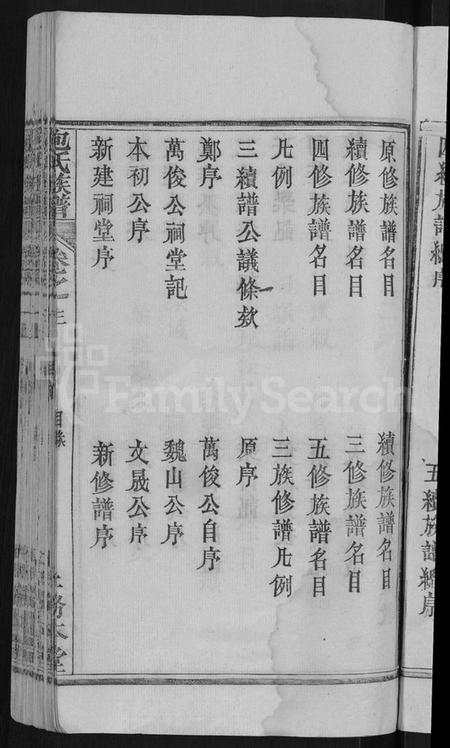 五續族譜總序
原修族譜名目
續修族譜名目
續修族譜名目
三修族譜名目
四修族譜名目
五修族譜名目
凡例
三族修譜凡例
三續譜公議條欵
原序
鄭序
萬俊公自序
萬俊公祠堂記
魏山公序
本初公序
文晟公序
新建祠堂序
新修譜序
氏族譜
卷之
三
目錄
堂
FamilySearch